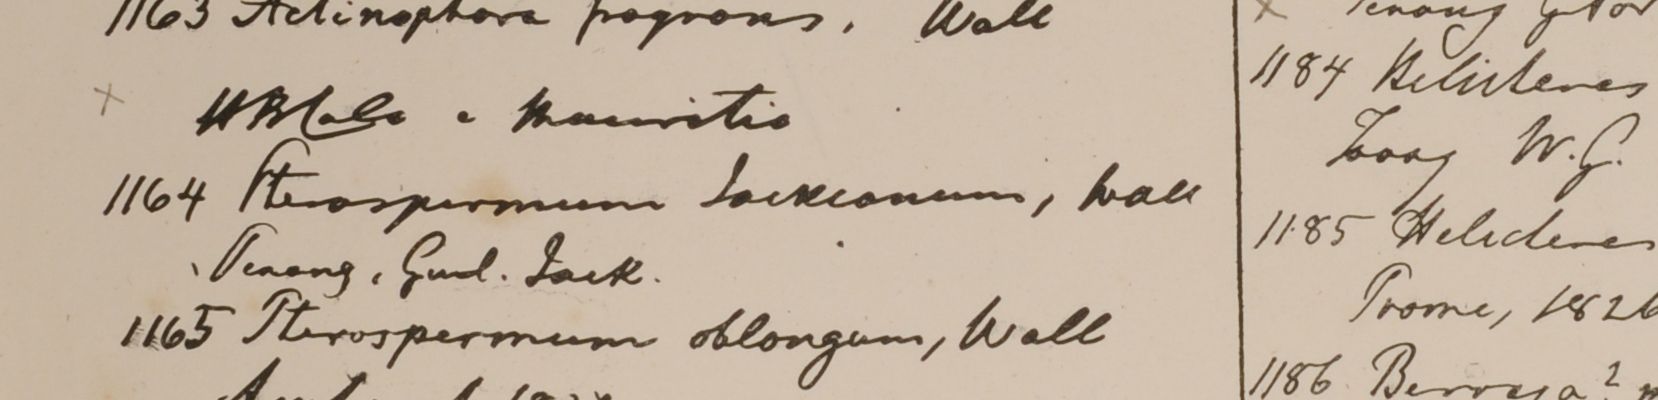 1163 Actinophora fragrans. Wall
x HBCalc e Mauritio
1164 Pterospermum Jackianum, Wall
Penang, Gul. Jack.
1165 Pterospermum oblongum, Wall
x Penang
1184 Helicteres
Tavoy W.G.
1185 Helicteres
Prome, 1826
1186 Berrya?